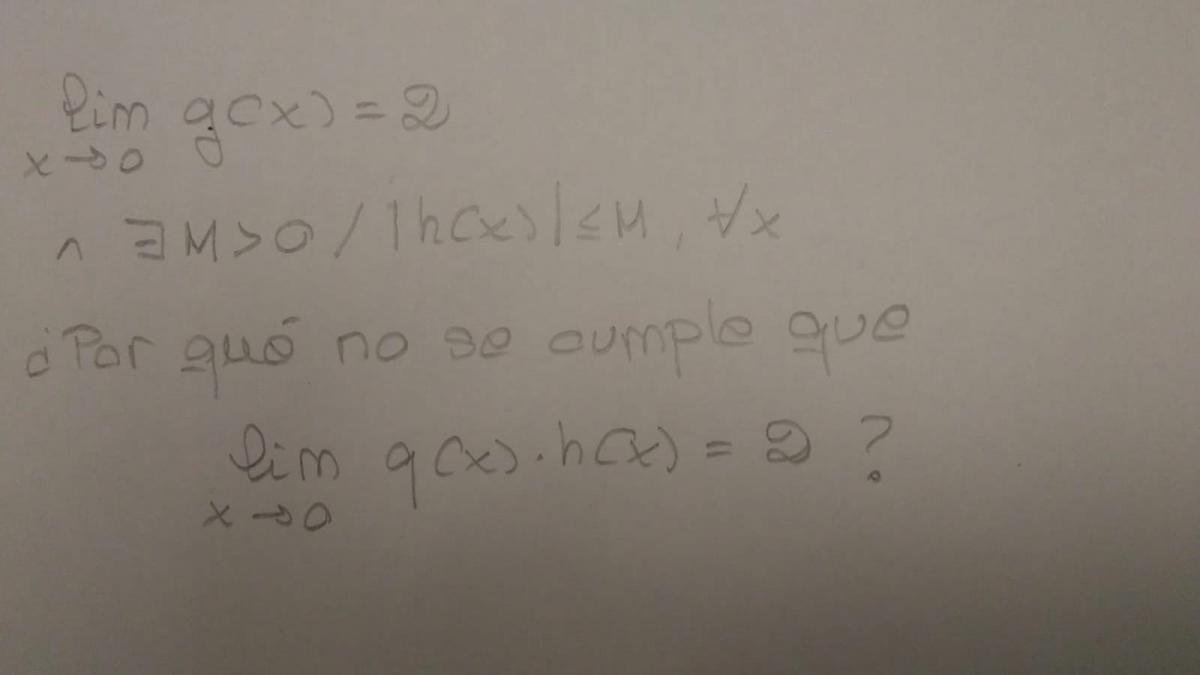 lim g(x) = 2
x→0
∧ ∃M>0 / |h(x)| ≤ M, ∀x
¿Por qué no se cumple que
lim g(x)·h(x) = 2 ?
x→0